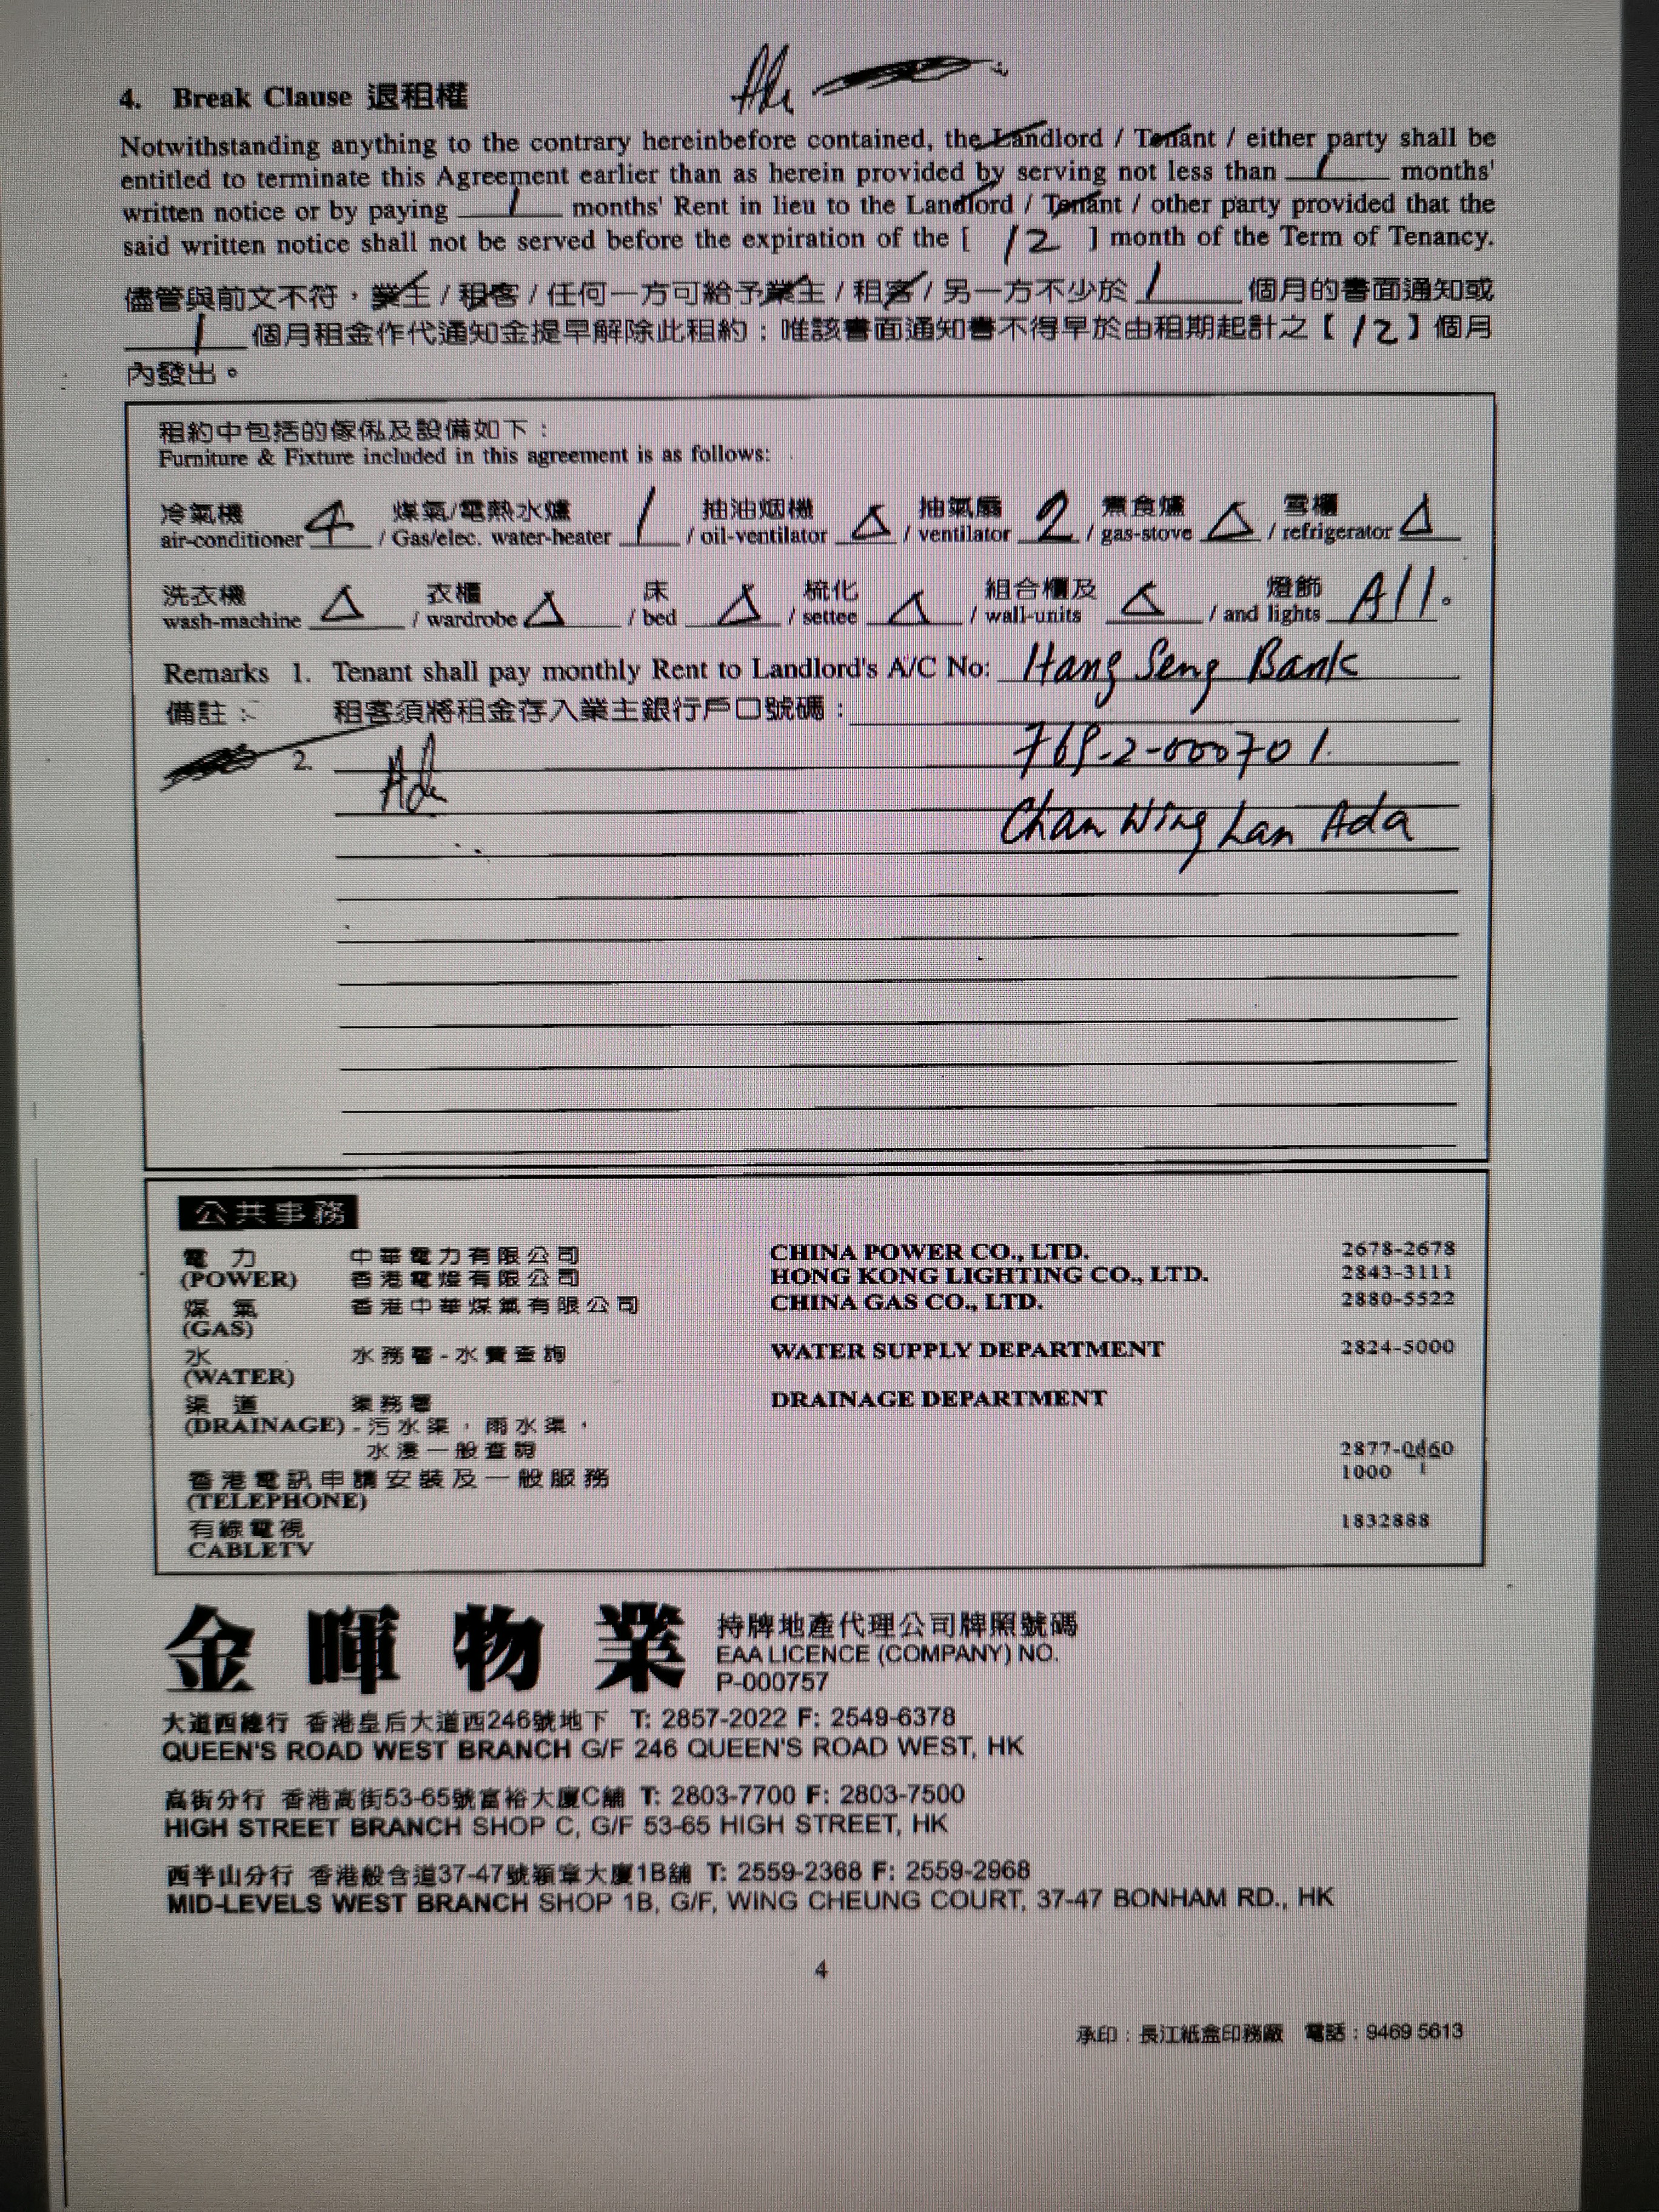 4. Break Clause 退租權
Notwithstanding anything to the contrary hereinbefore contained, the Landlord / Tenant / either party shall be
entitled to terminate this Agreement earlier than as herein provided by serving not less than 1 months'
written notice or by paying 1 months' Rent in lieu to the Landlord / Tenant / other party provided that the
said written notice shall not be served before the expiration of the [ 12 ] month of the Term of Tenancy.
儘管與前文不符，業主 / 租客 / 任何一方可給予業主 / 租客 / 另一方不少於 1 個月的書面通知或
1 個月租金作代通知金提早解除此租約；唯該書面通知書不得早於由租期起計之【 12 】個月
內發出。
租約中包括的傢俬及設備如下：
Furniture & Fixture included in this agreement is as follows:
冷氣機 煤氣/電熱水爐 抽油烟機 抽氣扇 煮食爐 雪櫃
air-conditioner 4 / Gas/elec. water-heater 1 / oil-ventilator △ / ventilator 2 / gas-stove △ / refrigerator △
洗衣機 衣櫃 床 梳化 組合櫃及 燈飾
wash-machine △ / wardrobe △ / bed △ / settee △ / wall-units △ / and lights All.
Remarks 1. Tenant shall pay monthly Rent to Landlord's A/C No: Hang Seng Bank
備註： 租客須將租金存入業主銀行戶口號碼：
2.
Chan Wing Lan Ada
公共事務
電力 中華電力有限公司 CHINA POWER CO., LTD. 2678-2678
(POWER) 香港電燈有限公司 HONG KONG LIGHTING CO., LTD. 2843-3111
煤氣 香港中華煤氣有限公司 CHINA GAS CO., LTD. 2880-5522
(GAS)
水 水務署-水費查詢 WATER SUPPLY DEPARTMENT 2824-5000
(WATER)
渠道 渠務署 DRAINAGE DEPARTMENT
(DRAINAGE) - 污水渠，雨水渠，
水浸一般查詢
香港電訊申請安裝及一般服務 1000
(TELEPHONE)
有線電視 1832888
CABLETV
金暉物業 持牌地產代理公司牌照號碼
EAA LICENCE (COMPANY) NO.
P-000757
大道西總行 香港皇后大道西246號地下 T: 2857-2022 F: 2549-6378
QUEEN'S ROAD WEST BRANCH G/F 246 QUEEN'S ROAD WEST, HK
高街分行 香港高街53-65號富裕大廈C舖 T: 2803-7700 F: 2803-7500
HIGH STREET BRANCH SHOP C, G/F 53-65 HIGH STREET, HK
西半山分行 香港般含道37-47號穎章大廈1B舖 T: 2559-2368 F: 2559-2968
MID-LEVELS WEST BRANCH SHOP 1B, G/F, WING CHEUNG COURT, 37-47 BONHAM RD., HK
4
承印：長江紙盒印務廠 電話：9469 5613